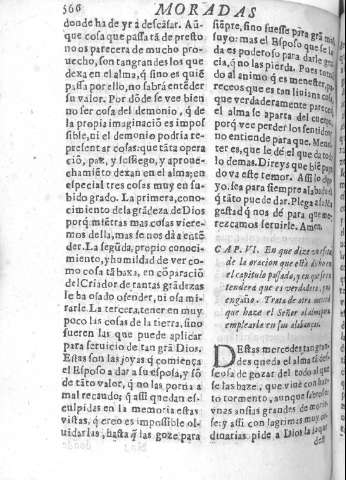 566
MORADAS
donde ha de yr a descãsar. Aũ-
que cosa que passa tã de presto
no os parecera de mucho pro-
uecho, son tan grandes los que
dexa en el alma, q̃ sino es quiẽ
passa por ello, no sabrà entẽder
su valor. Por dõde se vee bien
no ser cosa del demonio, q̃ de
la propia imaginaciõ es impos
sible, ni el demonio podria re-
presentar cosas que tãta opera
ciõ, paz, y sossiego, y aproue-
chamiẽto dexan en el alma; en
especial tres cosas muy en su-
bido grado. La primera, cono-
cimiento de la grãdeza de Dios
porq̃ miẽtras mas cosas viere-
mos della, mas se nos dà a entẽ
der. La segũda, propio conoci-
miento, y humildad de ver co-
mo cosa tã baxa, en cõparaciõ
del Criador de tantas grãdezas
le ha osado ofender, ni osa mi-
rarle. La tercera, tener en muy
poco las cosas de la tierra, sino
fueren las que puede aplicar
para seruicio de tan grã Dios.
Estas son las joyas q̃ comiença
el Esposo a dar a su esposa, y sõ
de tãto valor, q̃ no las porna a
mal recaudo; q̃ assi quedan es-
culpidas en la memoria estas
vistas, q̃ creo es impossible ol-
uidarlas, hasta q̃ las goze para
siẽpre, sino fuesse para grã mal
suyo: mas el Esposo que se la
da es poderoso para darle gra
cia, q̃ no las pierda. Pues
do al animo q̃ es menester,
receos que es tan liuiana cosa,
que verdaderamente parece
el alma se aparta del cuerpo,
porq̃ vee perder los sentidos
no entiende para que. Menes-
ter es, que le dè el que da todo
lo demas. Direys que biẽ
do va este temor. Assi lo digo
yo, sea para siempre alabado
q̃ tãto puede dar. Plega a su Ma
gestad q̃ nos dè para que me-
rezcamos seruirle. Amen.
CAP. VI. En que dize vn efeto
de la oracion que està dicha en
el capitulo passado, y en que se en
tenderà que es verdadera, y no
engaño. Trata de otra merced
que haze el Señor al alma para
emplearla en sus alabanças.
DEstas mercedes tan gran-
des queda el alma tã des-
seosa de gozar del todo al que
se las haze, que viue con har-
to tormento, aunque sabroso:
vnas ansias grandes de morir-
se: y assi con lagrimas muy or-
dinarias pide a Dios la saque
dest